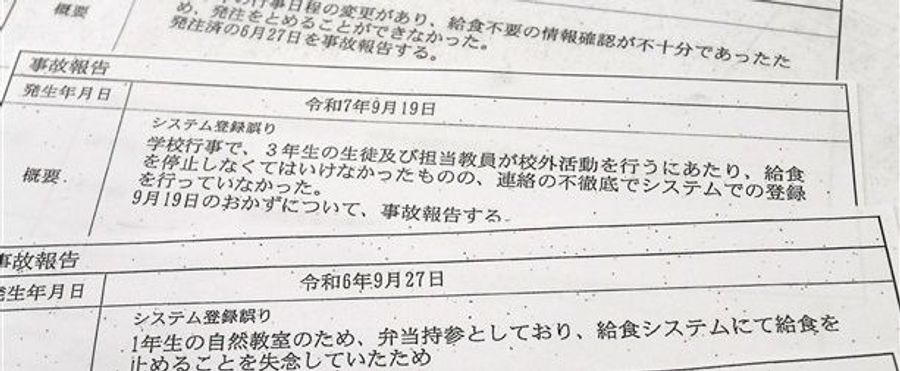 行事日程の変更があり、給食不要の情報確認が不十分であったた
概要
め、発注をとめることができなかった。
発注済の6月27日を事故報告する。
事故報告
発生年月日
令和7年9月19日
システム登録誤り
学校行事で、3年生の生徒及び担当教員が校外活動を行うにあたり、給食
概要
を停止しなくてはいけなかったものの、連絡の不徹底でシステムでの登録
を行っていなかった。
9月19日のおかずについて、事故報告する。
事故報告
発生年月日
令和6年9月27日
システム登録誤り
1年生の自然教室のため、弁当持参としており、給食システムにて給食を
止めることを失念していたため